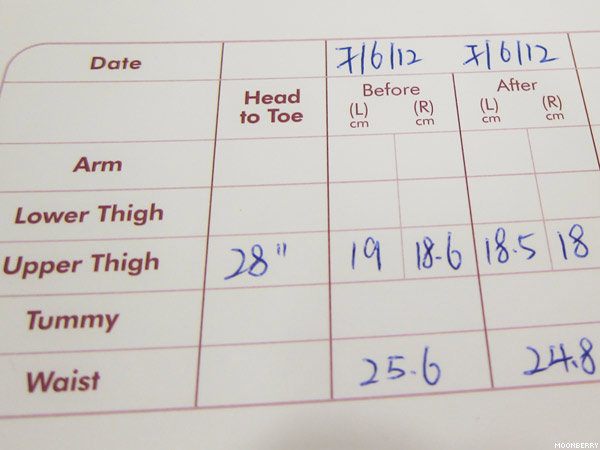 Date 7/6/12 7/6/12
Head to Toe Before After
(L) cm (R) cm (L) cm (R) cm
Arm
Lower Thigh
Upper Thigh 28" 19 18.6 18.5 18
Tummy
Waist 25.6 24.8
MOONBERRY